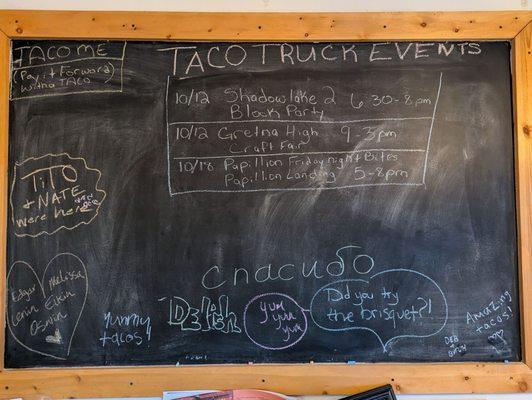 TACO ME
(Pay it Forward)
With a TACO
TACO TRUCK EVENTS
10/12 Shadowlake 2 6:30-8pm
Block Party
10/12 Gretna High 9-3pm
Craft Fair
10/18 Papillion Friday night Bites
Papillion Landing 5-8pm
TiTO
+ NATE
were here
спасибо
Edgar Melissa
Erikin
DELPH
yum
yum
yum
Did you try
the brisquet?!
yummy
tacos!
DEB
+
Amazing
tacos!